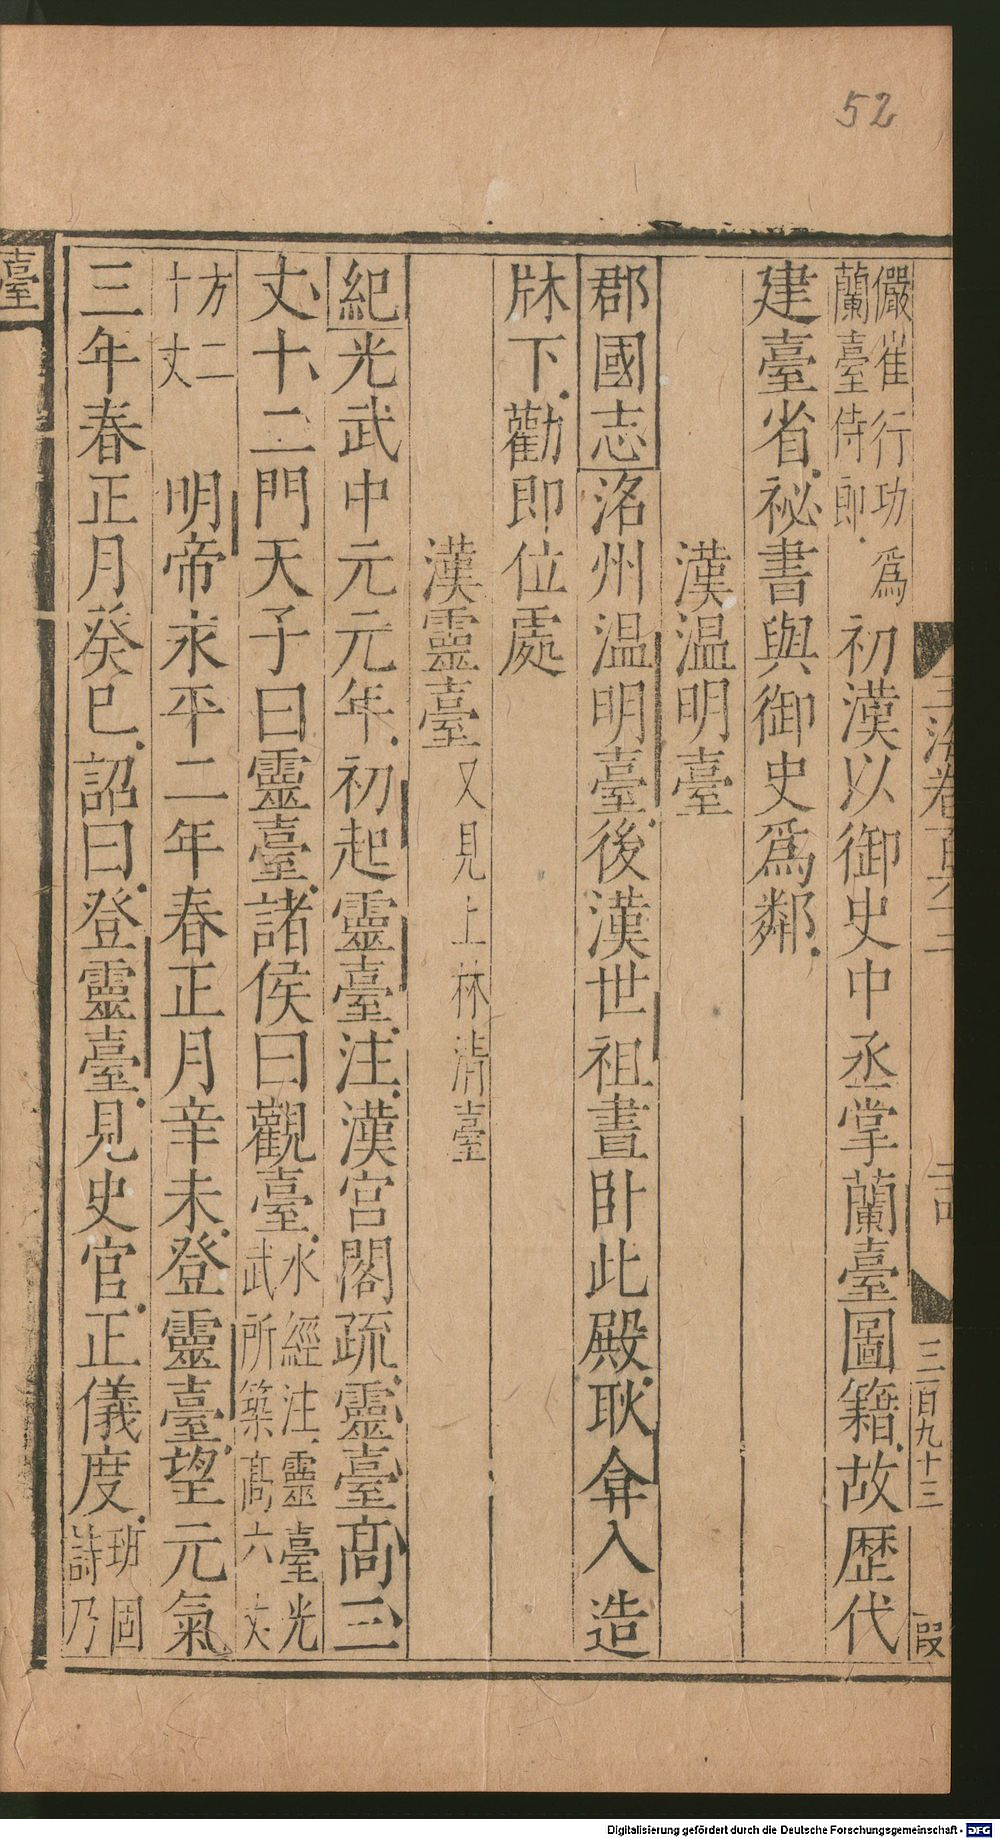 52
儼崔行功為
蘭臺侍郎
初漢以御史中丞掌蘭臺圖籍故歷代
建臺省祕書與御史為鄰
漢溫明臺
郡國志洛州溫明臺後漢世祖晝臥此殿耿弇入造
牀下勸即位處
漢靈臺又見上林清臺
紀光武中元元年初起靈臺注漢宮閣疏靈臺高三
丈十二門天子曰靈臺諸侯曰觀臺
水經注靈臺光
武所築高六丈
方二
十丈
明帝永平二年春正月辛未登靈臺望元氣
三年春正月癸巳詔曰登靈臺見史官正儀度
班固
詩乃
臺
三百九十三
段
Digitalisierung gefördert durch die Deutsche Forschungsgemeinschaft - DFG